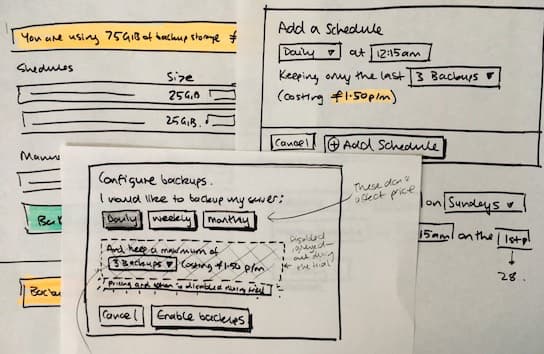 You are using 75GiB of backup storage £
Shedules
Size
25GiB
25GiB.
Manu
Ba
Backu
Add a Schedule
Daily ▼ at 12:15am
Keeping only the last 3 Backups ▼
(Costing £1.50p/m)
Cancel ⊕ Add Schedule
on Sundays ▼
15am on the 1st
28.
Configure backups.
I would like to backup my server:
Daily weekly monthly
These don't effect price
And keep a maximum of
3 Backups ▼ Costing £1.50 p/m
Disabled
out during
the trial
Pricing and is disabled during trial
Cancel Enable backups